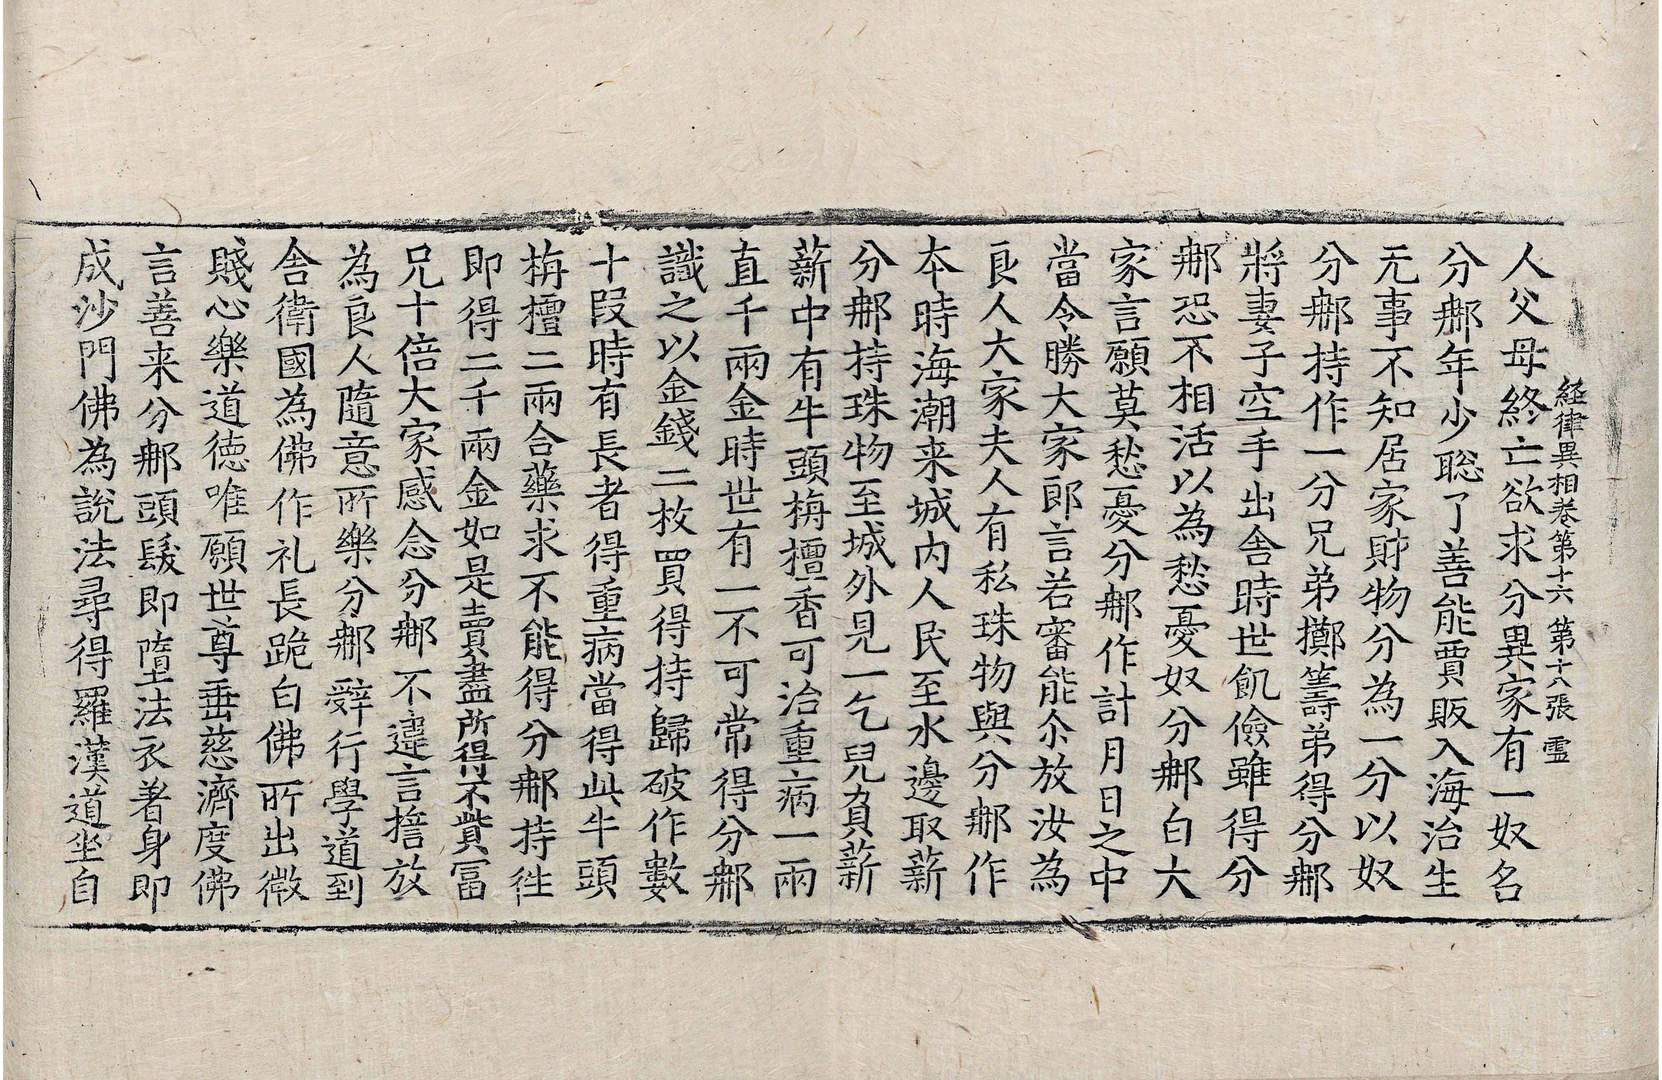 経律異相卷第十六 第十八張 靈
人父母終亡欲求分異家有一奴名
分𨚗年少聡了善能賈販入海治生
无事不知居家財物分為一分以奴
分𨚗持作一分兄弟擲籌弟得分𨚗
將妻子空手出舎時世飢儉雖得分
𨚗恐不相活以為愁憂奴分𨚗白大
家言願莫愁憂分𨚗作計月日之中
當令勝大家郎言若審能尒放汝為
良人大家夫人有私珠物與分𨚗作
本時海潮来城内人民至水邊取薪
分𨚗持珠物至城外見一乞兒負薪
薪中有牛頭栴檀香可治重病一兩
直千兩金時世有一不可常得分𨚗
識之以金錢二枚買得持歸破作數
十叚時有長者得重病當得此牛頭
栴檀二兩合藥求不能得分𨚗持徃
即得二千兩金如是賣盡所得不貲冨
兄十倍大家感念分𨚗不違言擔放
為良人隨意所樂分𨚗辝行學道到
舎衛國為佛作礼長跪白佛所出微
賤心樂道徳唯願世尊垂慈濟度佛
言善来分𨚗頭髮即墮法衣著身即
成沙門佛為說法尋得羅漢道坐自